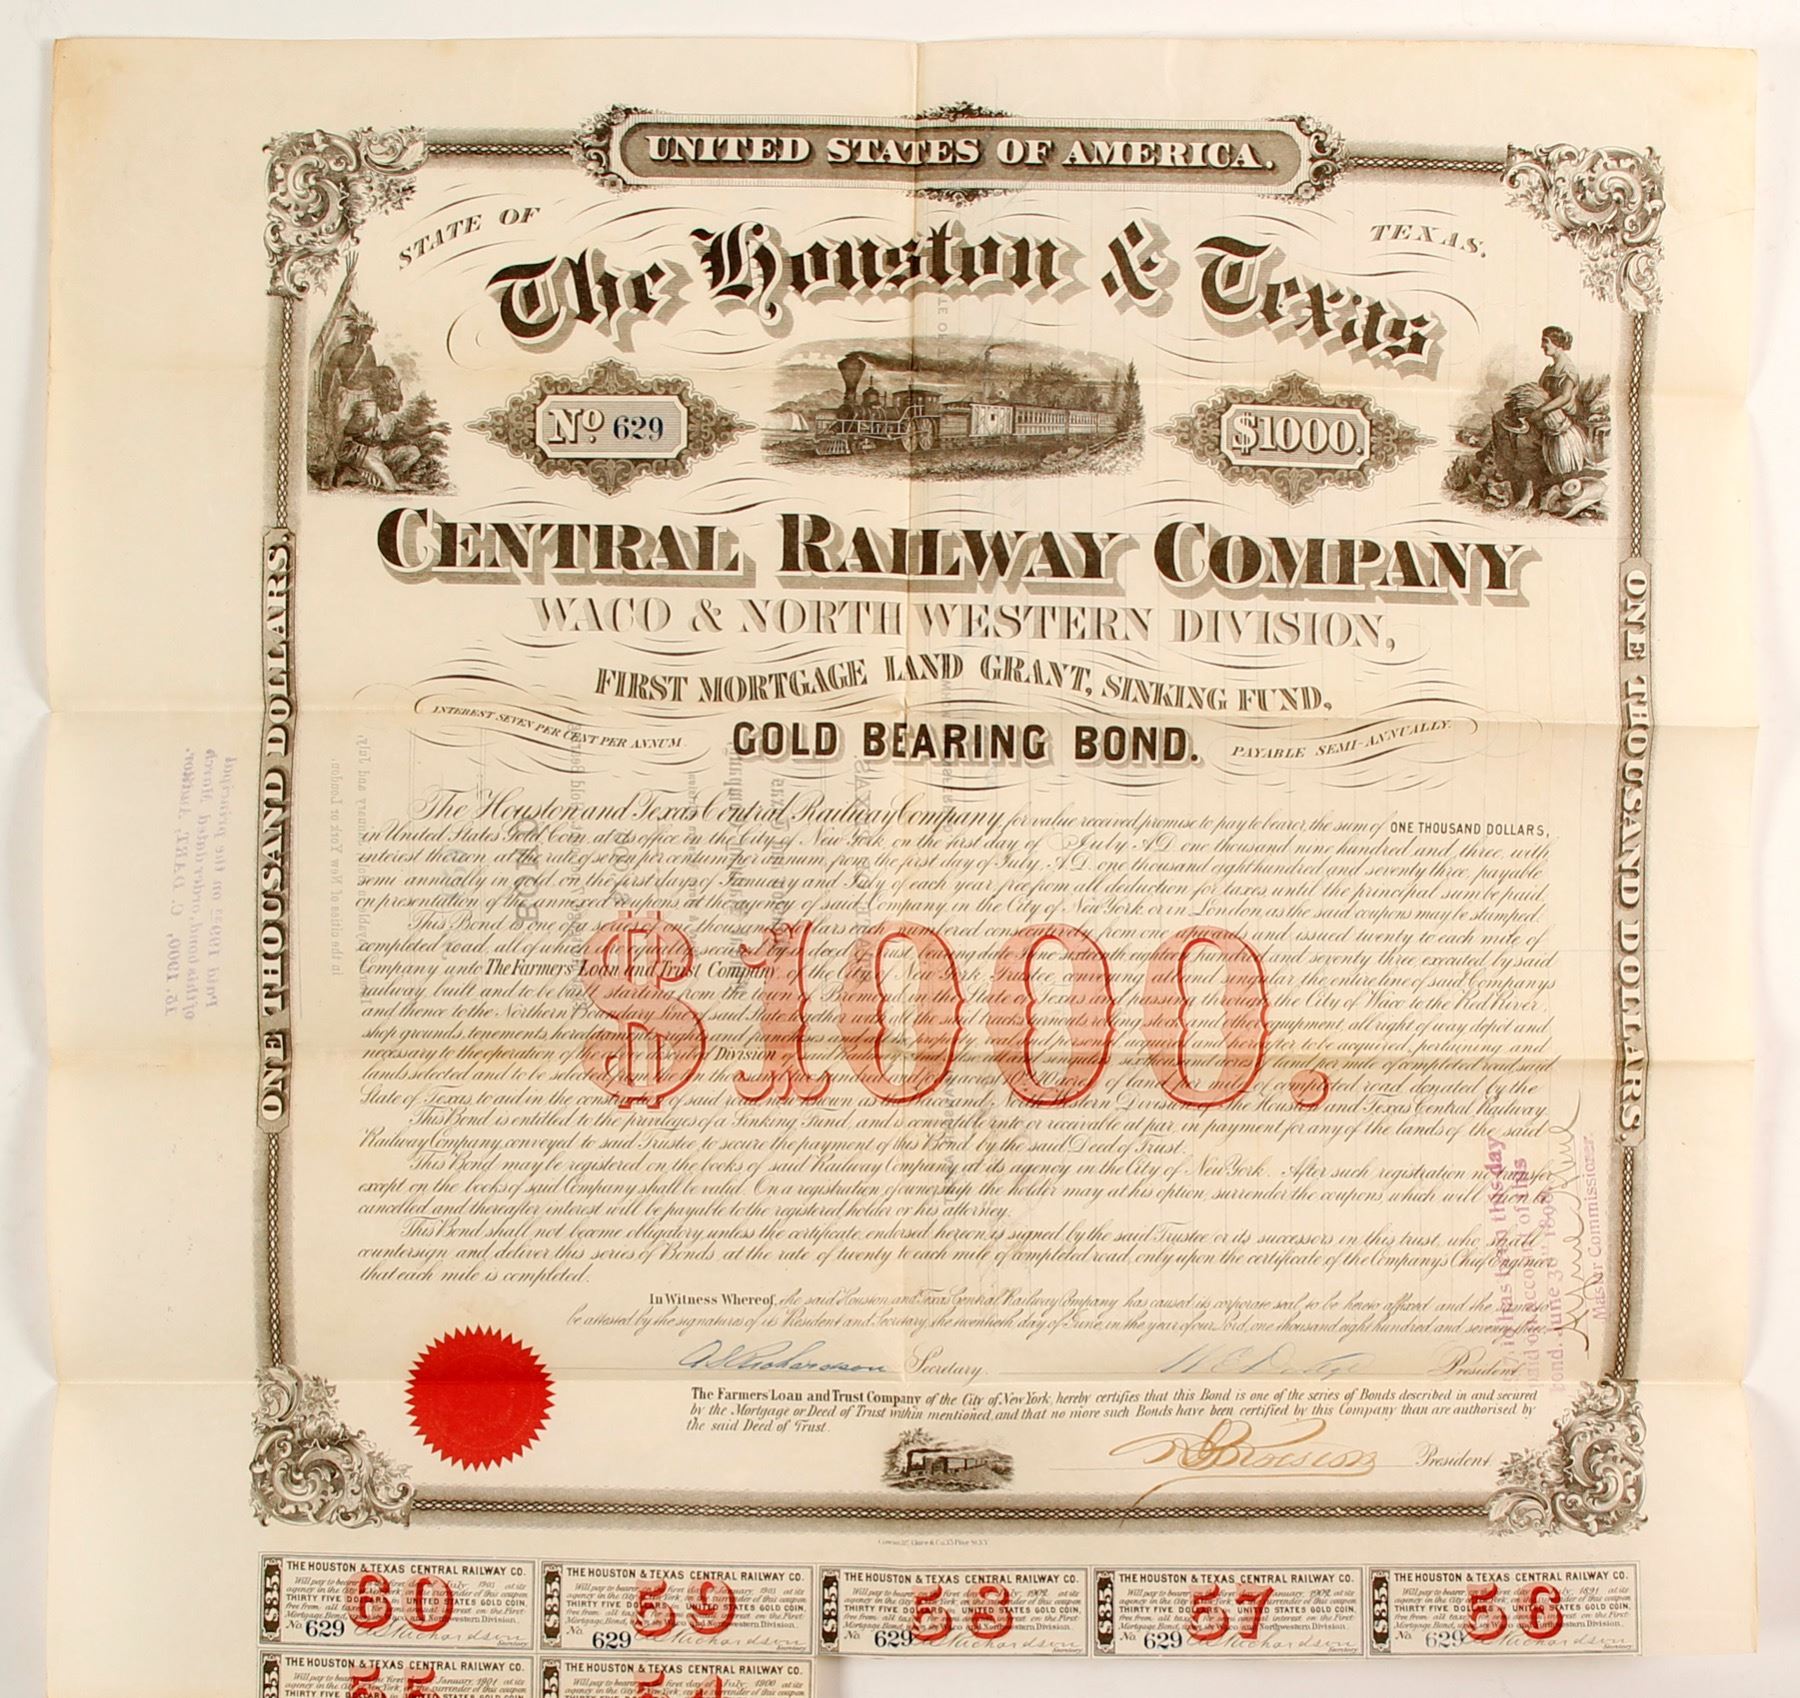 UNITED STATES OF AMERICA.
STATE OF
TEXAS.
The Houston & Texas
No. 629
$1000.
CENTRAL RAILWAY COMPANY
WACO & NORTH WESTERN DIVISION,
FIRST MORTGAGE LAND GRANT, SINKING FUND,
INTEREST SEVEN PER CENT PER ANNUM
GOLD BEARING BOND.
PAYABLE SEMI-ANNUALLY.
ONE THOUSAND DOLLARS.
ONE THOUSAND DOLLARS.
The Houston and Texas Central Railway Company, for value received, promise to pay to bearer, the sum of ONE THOUSAND DOLLARS,
in United States Gold Coin, at its office in the City of New York, on the first day of July A.D. one thousand nine hundred and three, with
interest thereon, at the rate of seven per centum per annum, from the first day of July A.D. one thousand eight hundred and seventy three, payable
semi annually in gold, on the first days of January and July of each year, free from all deduction for taxes until the principal sum be paid,
on presentation of the annexed coupons, at the agency of said Company in the City of New York or in London, as the said coupons may be stamped.
This Bond is one of a series of one thousand dollars each, numbered consecutively from one upwards and issued twenty to each mile of
completed road, all of which are equally secured by a deed of trust, bearing date June sixteenth eighteen hundred and seventy three, executed by said
Company unto The Farmers' Loan and Trust Company, of the City of New York, Trustee, conveying all and singular the entire line of said Company's
railway, built and to be built, starting from the town of Bremond, in the State of Texas and passing through the City of Waco to the Red River,
and thence to the Northern Boundary Line of said State, together with all the said tracks, turnouts, rolling stock and other equipment, all right of way, depot and
shop grounds, tenements, hereditaments, rights and franchises and all the property, real and personal, acquired and hereafter to be acquired, pertaining and
necessary to the operation of the above described Division of said Railway and also all and singular six thousand acres of land per mile of completed road, said
lands selected and to be selected from the ten thousand two hundred and forty acres 10240 acres of land per mile of completed road, donated by the
State of Texas, to aid in the construction of said road, now known as the Waco and North Western Division of The Houston and Texas Central Railway.
$1000.
This Bond is entitled to the privileges of a Sinking Fund, and is convertible into or receivable at par, in payment for any of the lands of the said
Railway Company, conveyed to said Trustee, to secure the payment of this Bond by the said Deed of Trust.
This Bond may be registered on the books of said Railway Company, at its agency in the City of New York. After such registration no transfer
except on the books of said Company shall be valid. On a registration of ownership the holder may at his option, surrender the coupons, which will then be
cancelled and thereafter interest will be payable to the registered holder or his attorney.
This Bond shall not become obligatory unless the certificate endorsed hereon, is signed by the said Trustee or its successors in this trust, who shall
countersign and deliver this series of Bonds at the rate of twenty to each mile of completed road, only upon the certificate of the Company's Chief Engineer
that each mile is completed.
In Witness Whereof, the said Houston and Texas Central Railway Company has caused its corporate seal to be hereto affixed and the same to
be attested by the signatures of its President and Secretary, the twentieth day of June, in the year of our Lord, one thousand eight hundred and seventy three.
A S Richardson Secretary.
W E Dodge President
The Farmers' Loan and Trust Company of the City of New York, hereby certifies that this Bond is one of the series of Bonds described in and secured
by the Mortgage or Deed of Trust within mentioned, and that no more such Bonds have been certified by this Company than are authorised by
the said Deed of Trust.
President
has this day
on account of this
bond. June 30
Master Commissioner.
Paid on the principal
of this bond, order dated March
15, 1900, C. DART, Auditor.
THE HOUSTON & TEXAS CENTRAL RAILWAY CO.
$35.
60
Will pay to bearer on the first day of July 1903 at its
agency in the City of New York, on the surrender of this coupon
THIRTY FIVE DOLLARS IN UNITED STATES GOLD COIN,
No. 629
A S Richardson
Secretary
THE HOUSTON & TEXAS CENTRAL RAILWAY CO.
$35.
59
Will pay to bearer on the first day of January, 1903 at its
agency in the City of New York, on the surrender of this coupon
THIRTY FIVE DOLLARS IN UNITED STATES GOLD COIN,
No. 629
A S Richardson
Secretary
THE HOUSTON & TEXAS CENTRAL RAILWAY CO.
$35.
58
Will pay to bearer on the first day of July, 1902 at its
agency in the City of New York, on the surrender of this coupon
THIRTY FIVE DOLLARS IN UNITED STATES GOLD COIN,
No. 629
A S Richardson
Secretary
THE HOUSTON & TEXAS CENTRAL RAILWAY CO.
$35.
57
Will pay to bearer on the first day of January, 1902 at its
agency in the City of New York, on the surrender of this coupon
THIRTY FIVE DOLLARS IN UNITED STATES GOLD COIN,
No. 629
A S Richardson
Secretary
THE HOUSTON & TEXAS CENTRAL RAILWAY CO.
$35.
56
Will pay to bearer on the first day of July, 1891 at its
agency in the City of New York, on the surrender of this coupon
THIRTY FIVE DOLLARS IN UNITED STATES GOLD COIN,
No. 629
A S Richardson
Secretary
THE HOUSTON & TEXAS CENTRAL RAILWAY CO.
55
Will pay to bearer on the first day of January, 1901 at its
THE HOUSTON & TEXAS CENTRAL RAILWAY CO.
54
Will pay to bearer on the first day of July, 1900 at its